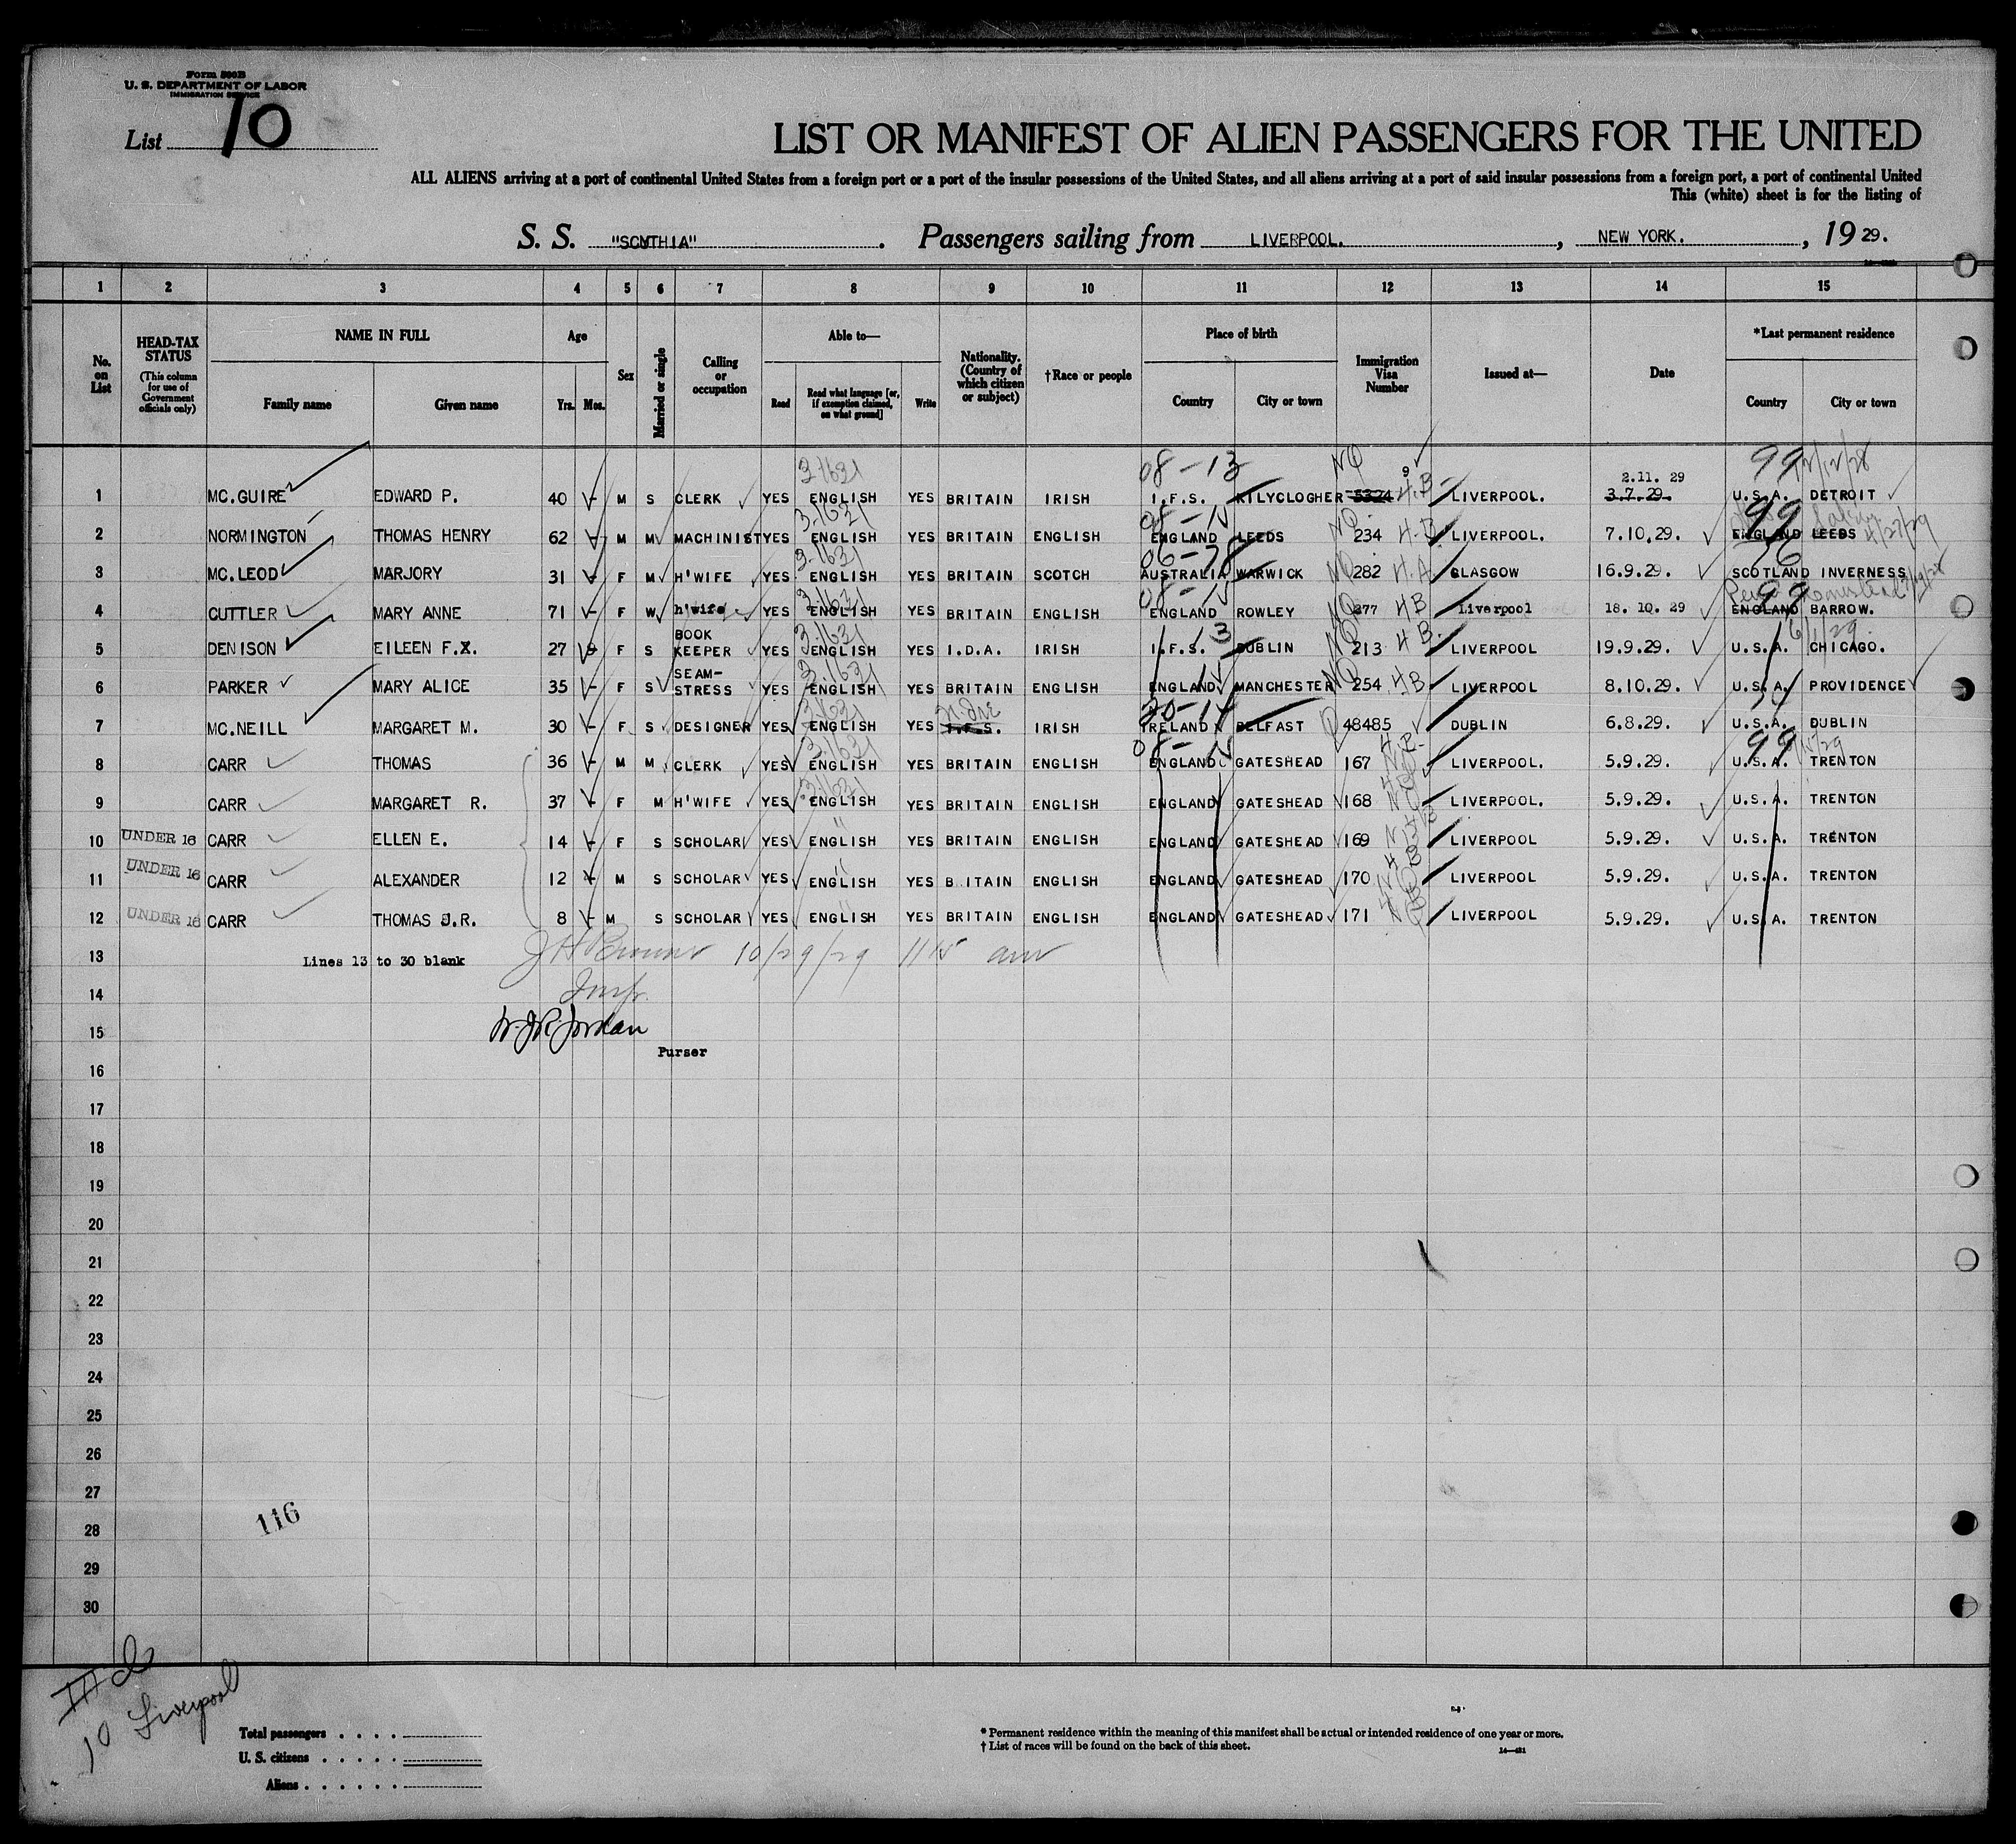 Form 500B
U. S. DEPARTMENT OF LABOR
IMMIGRATION SERVICE
List 10
LIST OR MANIFEST OF ALIEN PASSENGERS FOR THE UNITED
ALL ALIENS arriving at a port of continental United States from a foreign port or a port of the insular possessions of the United States, and all aliens arriving at a port of said insular possessions from a foreign port, a port of continental United
This (white) sheet is for the listing of
S. S. "SCYTHIA". Passengers sailing from LIVERPOOL., NEW YORK., 1929.
1 2 3 4 5 6 7 8 9 10 11 12 13 14 15
No. on List
HEAD-TAX STATUS (This column for use of Government officials only)
NAME IN FULL Family name Given name
Age Yrs. Mos.
Sex
Married or single
Calling or occupation
Able to— Read Read what language [or, if exemption claimed, on what ground] Write
Nationality. (Country of which citizen or subject)
†Race or people
Place of birth Country City or town
Immigration Visa Number
Issued at—
Date
*Last permanent residence Country City or town
08-13 NQ 99 12/12/28
3-1631 9 2.11. 29
1 MC.GUIRE EDWARD P. 40 - M S CLERK YES ENGLISH YES BRITAIN IRISH I.F.S. KILYCLOGHER 5324 4.B LIVERPOOL. 3.7.29. U.S.A. DETROIT
3.1631 99
2 NORMINGTON THOMAS HENRY 62 - M M MACHINIST YES ENGLISH YES BRITAIN ENGLISH ENGLAND LEEDS NQ 234 4.B LIVERPOOL. 7.10.29. ENGLAND LEEDS 4/27/29
3-1631 06-78
3 MC.LEOD MARJORY 31 - F M H'WIFE YES ENGLISH YES BRITAIN SCOTCH AUSTRALIA WARWICK NQ 282 4.A GLASGOW 16.9.29. SCOTLAND INVERNESS
3.1631 99
4 CUTTLER MARY ANNE 71 - F W h'wife YES ENGLISH YES BRITAIN ENGLISH ENGLAND ROWLEY NQ 277 4B Liverpool 18. 10. 29 ENGLAND BARROW.
3.1631 13
5 DENISON EILEEN F.X. 27 F S BOOK KEEPER YES ENGLISH YES I.D.A. IRISH I.F.S. DUBLIN NQ 213 4B. LIVERPOOL 19.9.29. U.S.A. CHICAGO. 6/1/29
3.1631
6 PARKER MARY ALICE 35 - F S SEAM- STRESS YES ENGLISH YES BRITAIN ENGLISH ENGLAND MANCHESTER NQ 254 4B LIVERPOOL 8.10.29. U.S.A. PROVIDENCE
3.1631 N. Ire 20-14
7 MC.NEILL MARGARET M. 30 - F S DESIGNER YES ENGLISH YES I.F.S. IRISH IRELAND BELFAST Q 48485 DUBLIN 6.8.29. U.S.A. DUBLIN
3.1631 99
8 CARR THOMAS 36 - M M CLERK YES ENGLISH YES BRITAIN ENGLISH ENGLAND GATESHEAD 167 LIVERPOOL. 5.9.29. U.S.A. TRENTON
3.1631
9 CARR MARGARET R. 37 - F M H'WIFE YES ENGLISH YES BRITAIN ENGLISH ENGLAND GATESHEAD 168 LIVERPOOL. 5.9.29. U.S.A. TRENTON
10 UNDER 16 CARR ELLEN E. 14 - F S SCHOLAR YES ENGLISH YES BRITAIN ENGLISH ENGLAND GATESHEAD 169 LIVERPOOL 5.9.29. U.S.A. TRENTON
11 UNDER 16 CARR ALEXANDER 12 - M S SCHOLAR YES ENGLISH YES B.ITAIN ENGLISH ENGLAND GATESHEAD 170 LIVERPOOL 5.9.29. U.S.A. TRENTON
12 UNDER 16 CARR THOMAS J.R. 8 - M S SCHOLAR YES ENGLISH YES BRITAIN ENGLISH ENGLAND GATESHEAD 171 LIVERPOOL 5.9.29. U.S.A. TRENTON
13 Lines 13 to 30 blank 10/29/29 1115 am
14 Insp.
15 W. J. R. Jordan
Purser
16
17
18
19
20
21
22
23
24
25
26
27
28 116
29
30
III cl
10 Liverpool
Total passengers
U. S. citizens
Aliens
* Permanent residence within the meaning of this manifest shall be actual or intended residence of one year or more.
† List of races will be found on the back of this sheet.
14—431